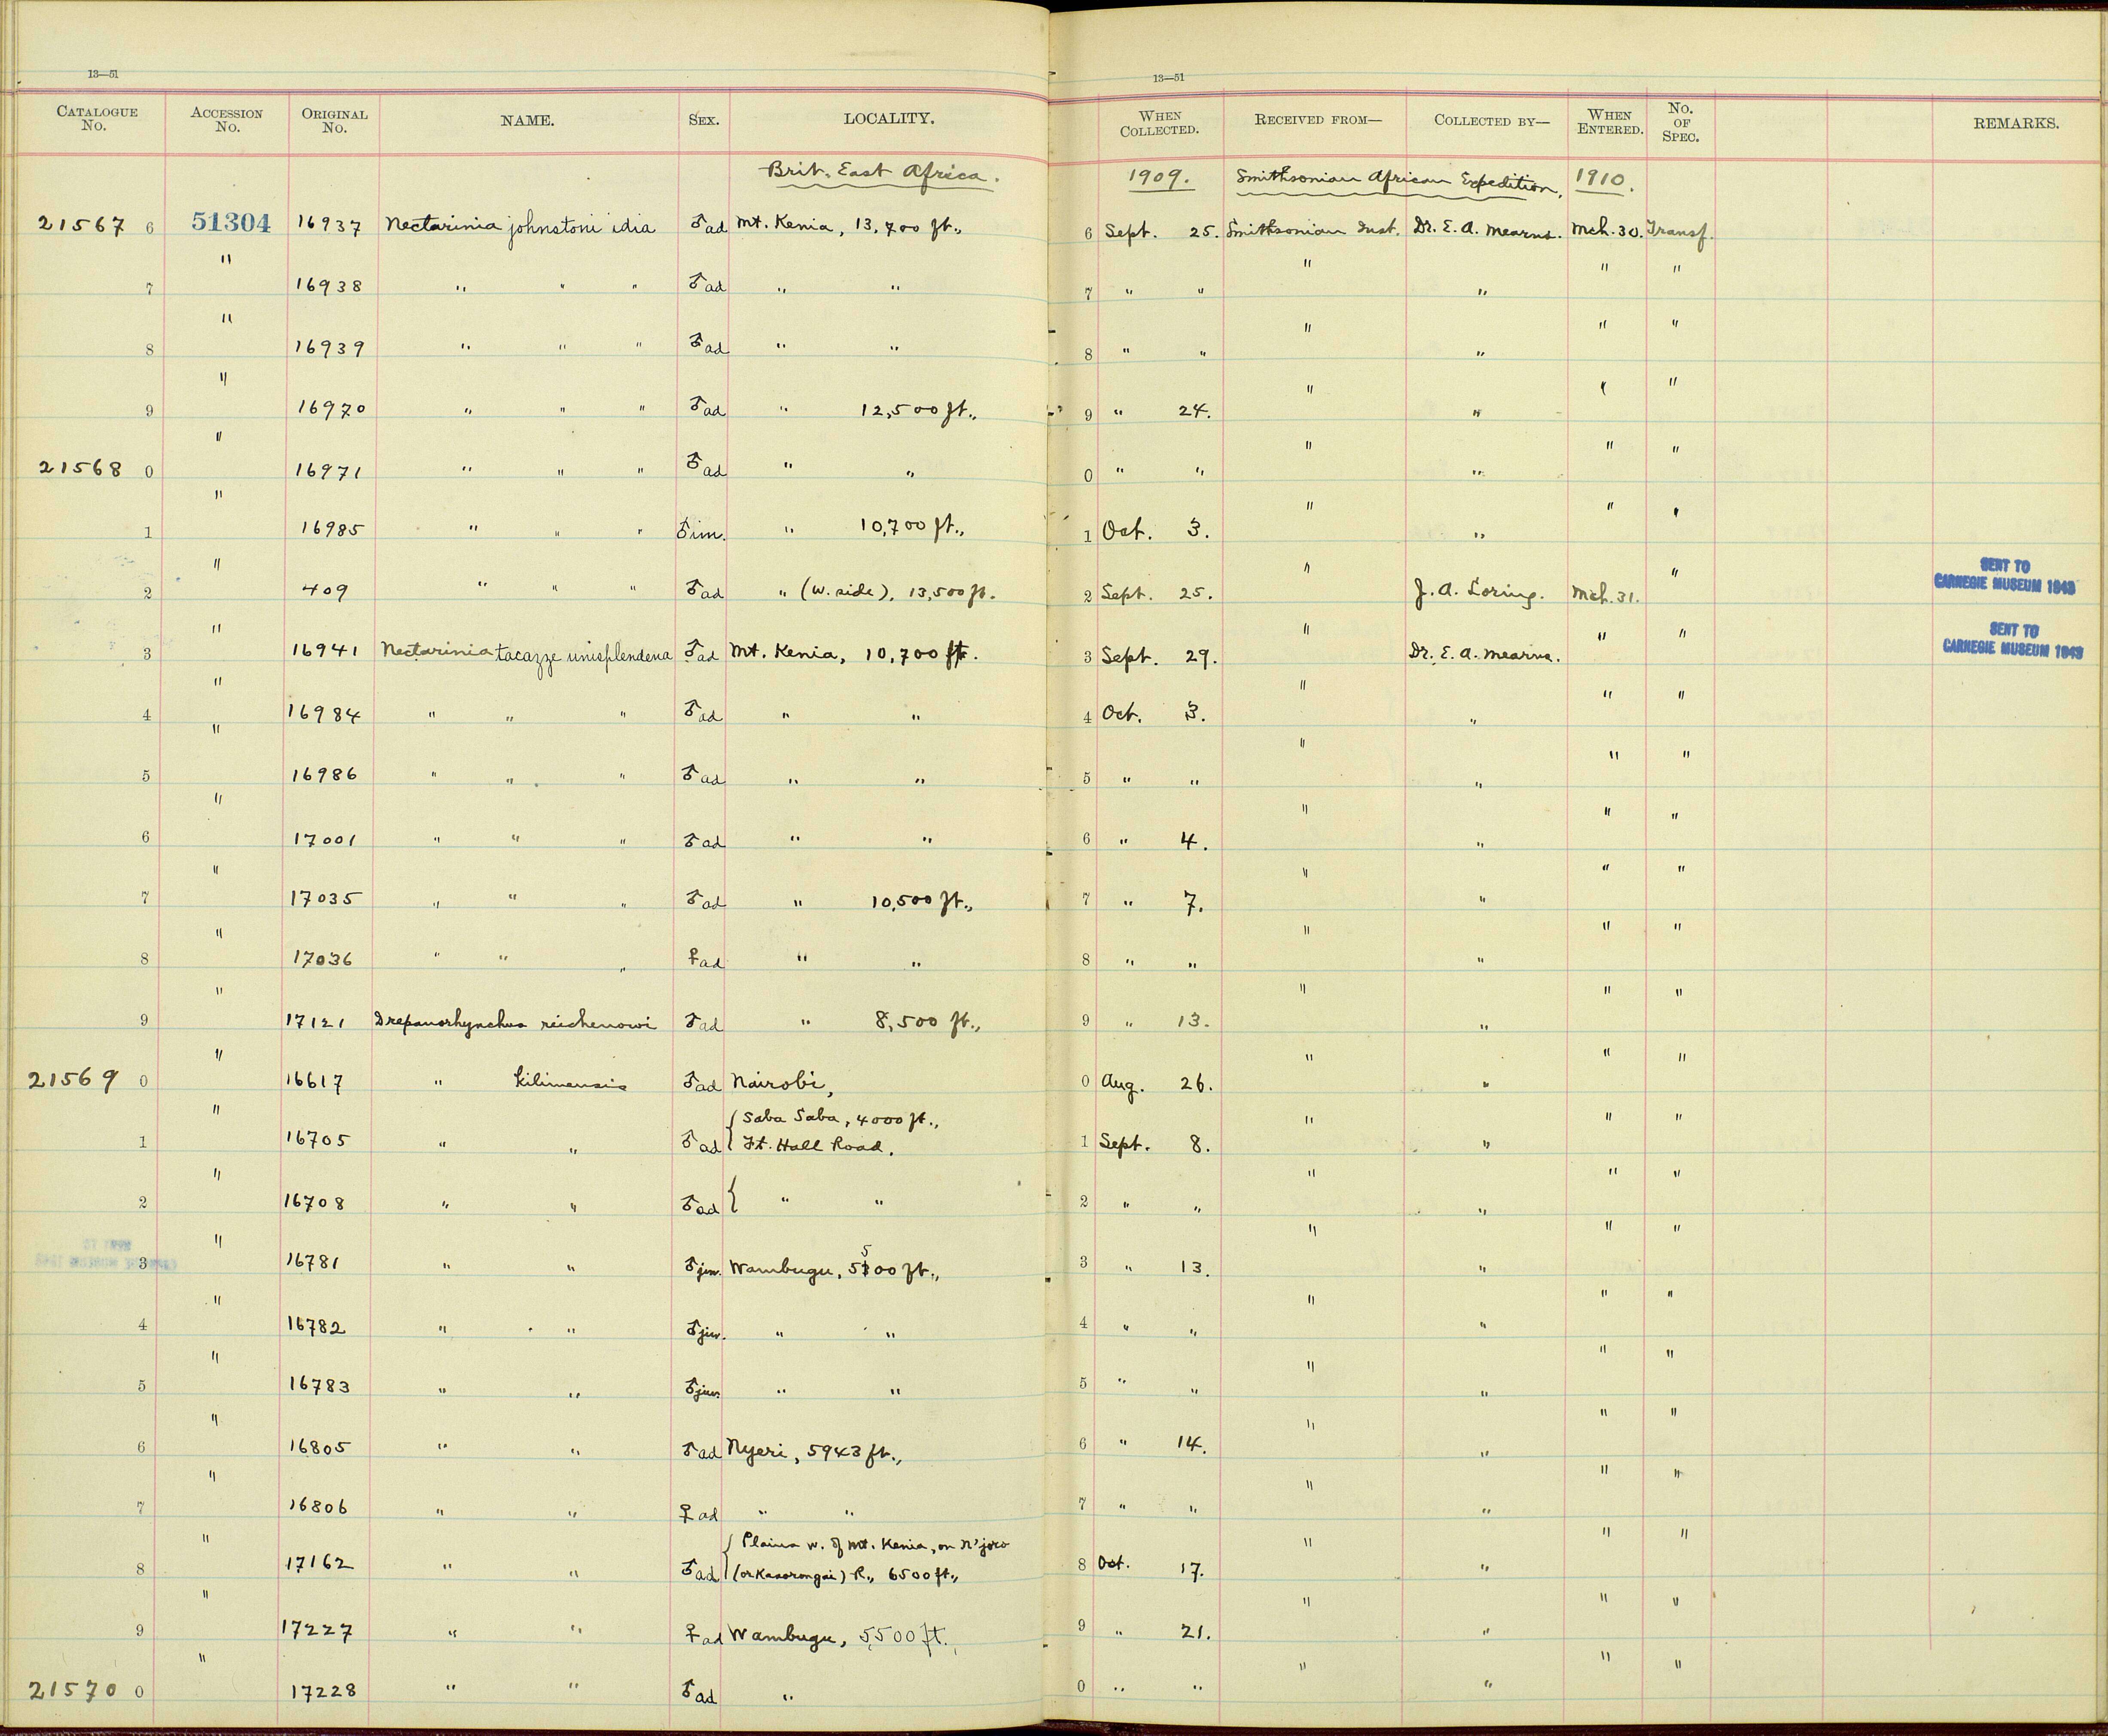 13—51
13—51
CATALOGUE No. ACCESSION No. ORIGINAL No. NAME. SEX. LOCALITY. WHEN COLLECTED. RECEIVED FROM— COLLECTED BY— WHEN ENTERED. No. OF SPEC. REMARKS.
Brit. East Africa. 1909. Smithsonian African Expedition, 1910.
21567 6 51304 16937 Nectarinia johnstoni idia ♂ad Mt. Kenia, 13,700 ft., 6 Sept. 25. Smithsonian Inst. Dr. E. A. Mearns. Mch. 30. Transf.
7 " 16938 " " " ♂ad " " 7 " " " " " "
8 " 16939 " " " ♂ad " " 8 " " " " " "
9 " 16970 " " " ♂ad " 12,500 ft., 9 " 24. " " " "
21568 0 " 16971 " " " ♂ad " " 0 " " " " " "
1 " 16985 " " " ♂im. " 10,700 ft., 1 Oct. 3. " " " "
2 " 409 " " " ♂ad " (W. side), 13,500 ft. 2 Sept. 25. " J. A. Loring. Mch. 31. " SENT TO CARNEGIE MUSEUM 1943
3 " 16941 Nectarinia tacazze unisplendens ♂ad Mt. Kenia, 10,700 ft. 3 Sept. 29. " Dr. E. A. Mearns. " " SENT TO CARNEGIE MUSEUM 1943
4 " 16984 " " " ♂ad " " 4 Oct. 3. " " " "
5 " 16986 " " " ♂ad " " 5 " " " " " "
6 " 17001 " " " ♂ad " " 6 " 4. " " " "
7 " 17035 " " " ♂ad " 10,500 ft., 7 " 7. " " " "
8 " 17036 " " " ♀ad " " 8 " " " " " "
9 " 17121 Drepanorhynchus reichenowi ♂ad " 8,500 ft., 9 " 13. " " " "
21569 0 " 16617 " kilimensis ♂ad Nairobi, 0 Aug. 26. " " " "
1 " 16705 " " ♂ad { Saba Saba, 4000 ft., Ft. Hall Road. 1 Sept. 8. " " " "
2 " 16708 " " ♂ad { " " 2 " " " " " "
3 " 16781 " " ♂juv. Wambugu, 5500 ft., 3 " 13. " " " "
4 " 16782 " " ♂juv. " " 4 " " " " " "
5 " 16783 " " ♂juv. " " 5 " " " " " "
6 " 16805 " " ♂ad Nyeri, 5943 ft., 6 " 14. " " " "
7 " 16806 " " ♀ad " " 7 " " " " " "
8 " 17162 " " ♂ad { Plains W. of Mt. Kenia, on N'joro (or Kasorongai) R., 6500 ft., 8 Oct. 17. " " " "
9 " 17227 " " ♀ad Wambugu, 5,500 ft., 9 " 21. " " " "
21570 0 " 17228 " " ♂ad " 0 " " " " " "